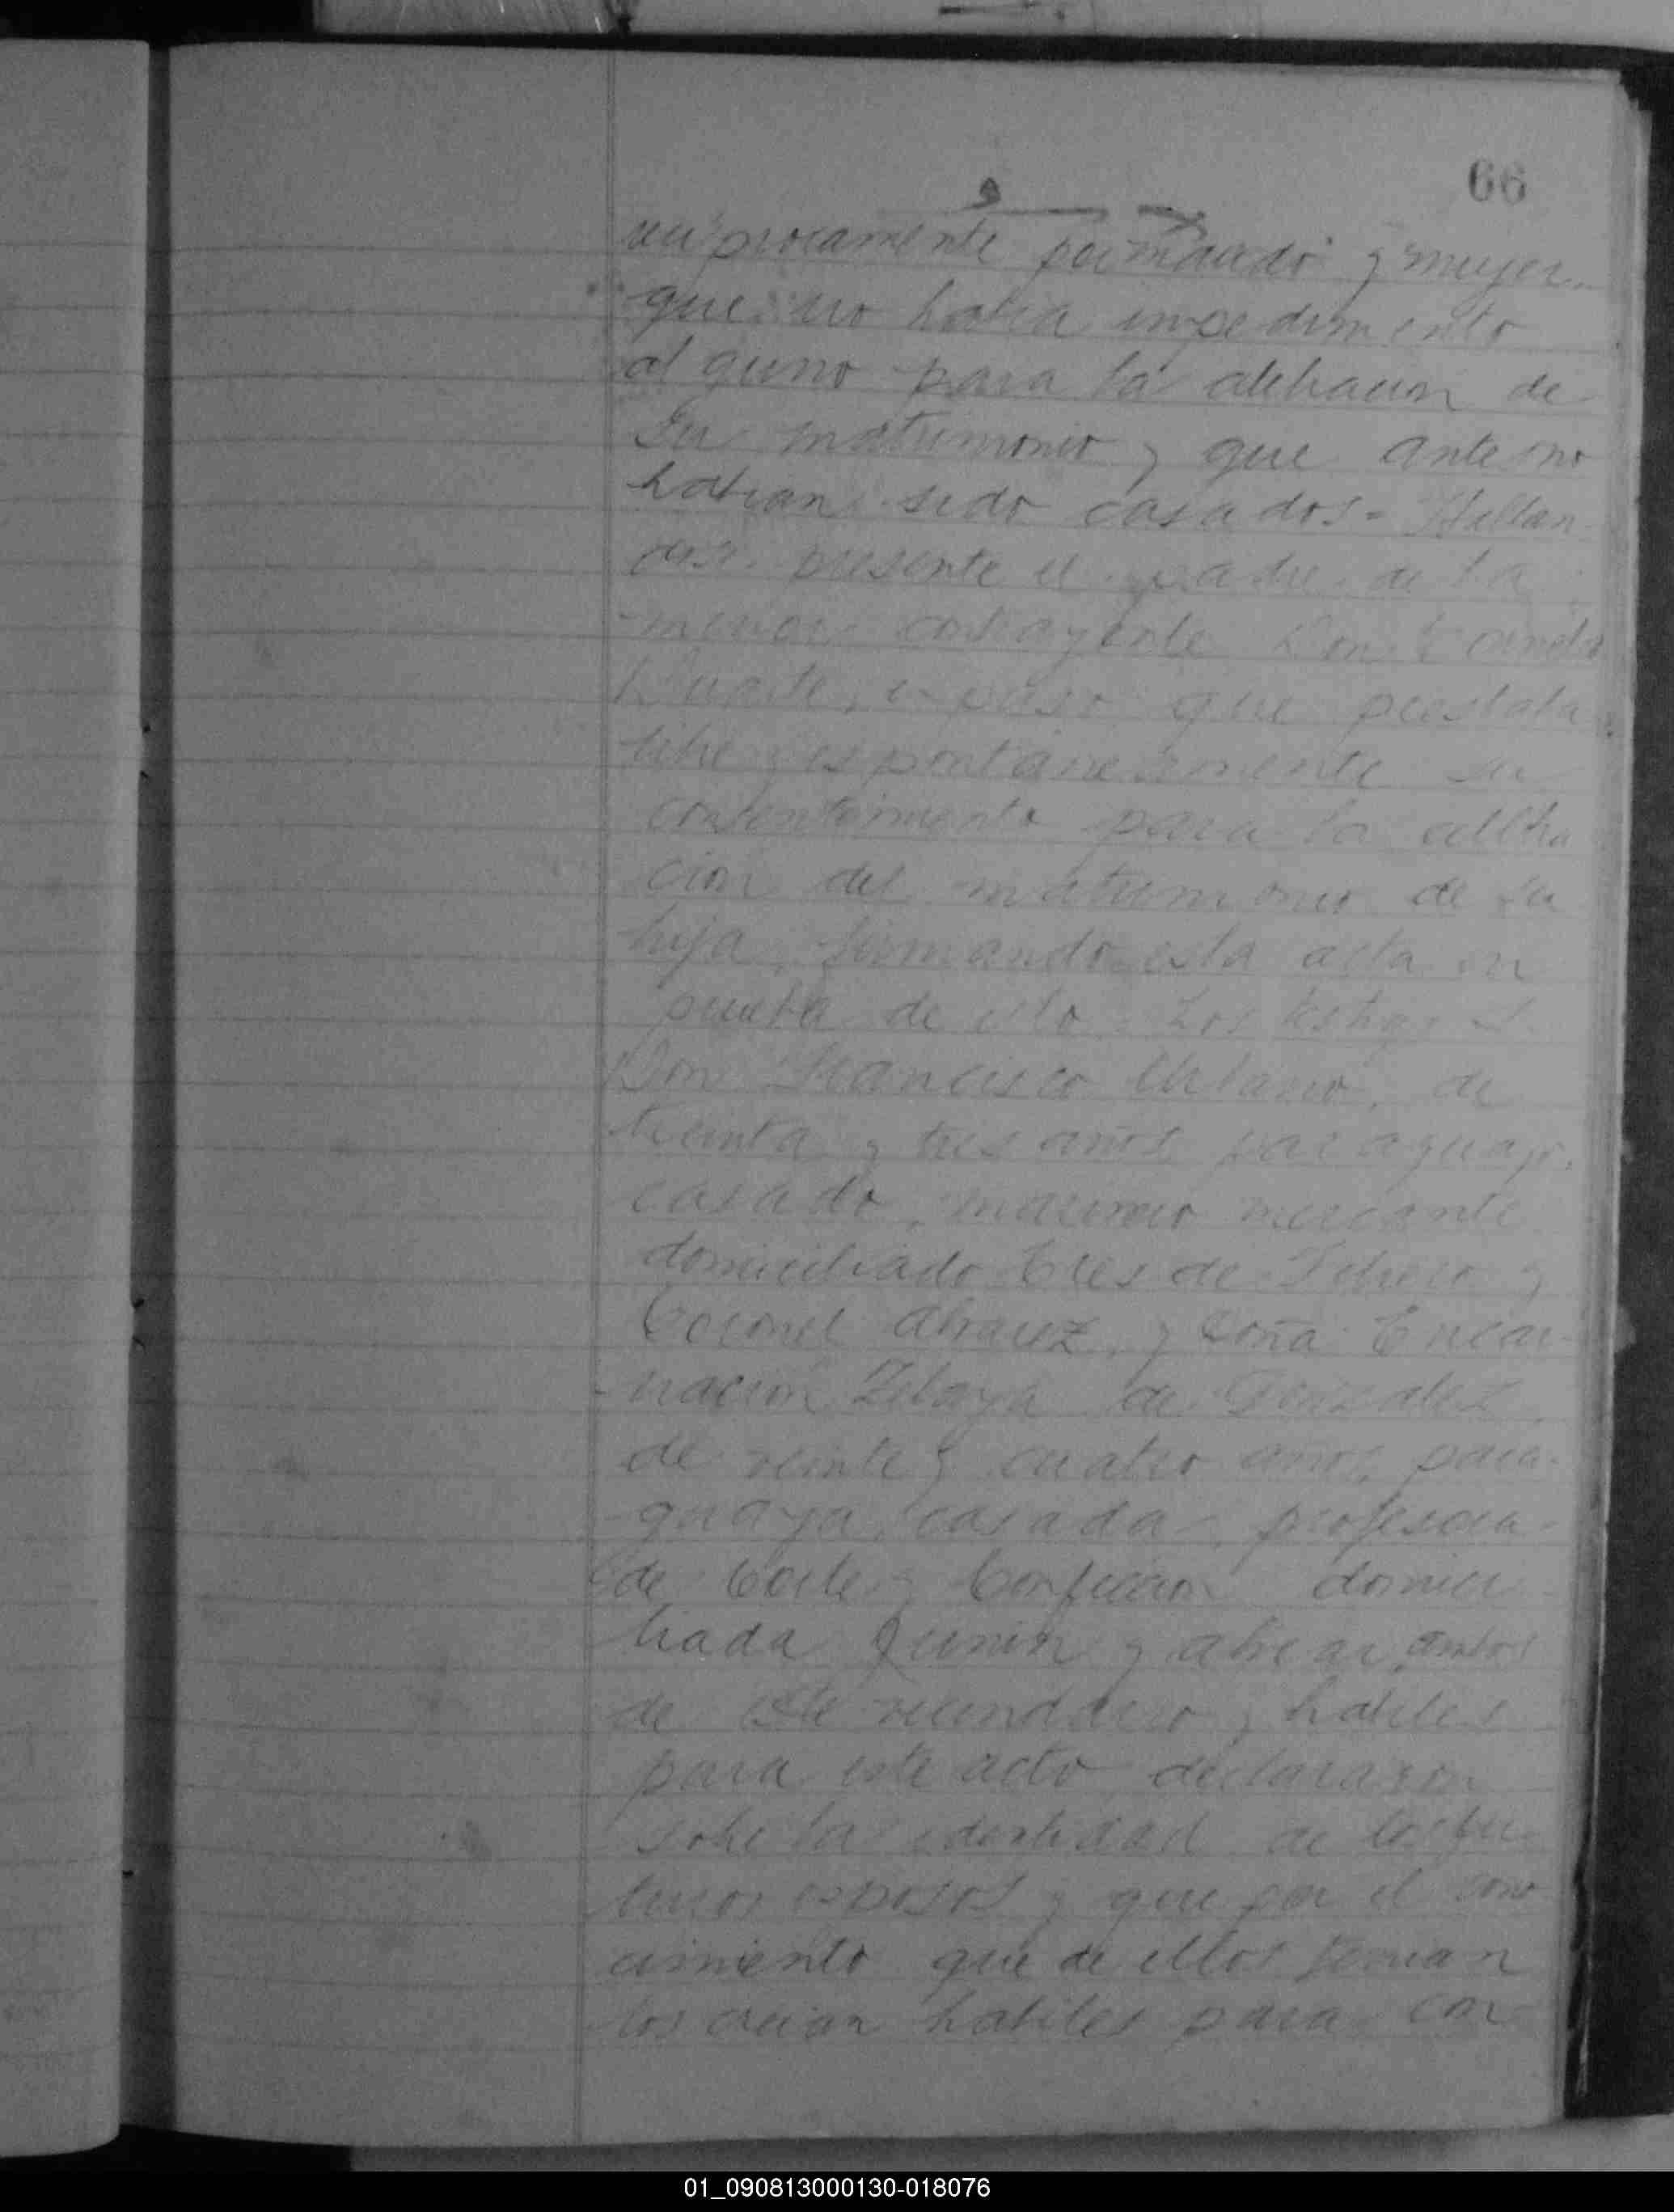 66
reciprocamente por marido y mujer
que no habia impedimento
alguno para la celebracion de
su matrimonio y que antes no
habian sido casados - Hallan
dose presente el padre de la
menor contrayente Don
Duarte, expuso que prestaba
libre y espontaneamente su
consentimiento para la celebra
cion del matrimonio de su
hija, firmando esta acta en
prueba de ello. Los testigos
Don Francisco de
treinta y tres años paraguayo,
casado, marinero mercante
domiciliado Tres de Febrero y
Coronel Alvarez, y Doña Encar-
nacion Zelaya de Gonzalez
de veinte y cuatro años, para-
guaya, casada, profesora
de Corte y Confeccion domici
liada Junin y Alvear, ambos
de este vecindario y habiles
para este acto declararon
sobre la identidad de los fu
turos esposos y que por el cono
cimiento que de ellos tenian
los creian habiles para con
01_090813000130-018076